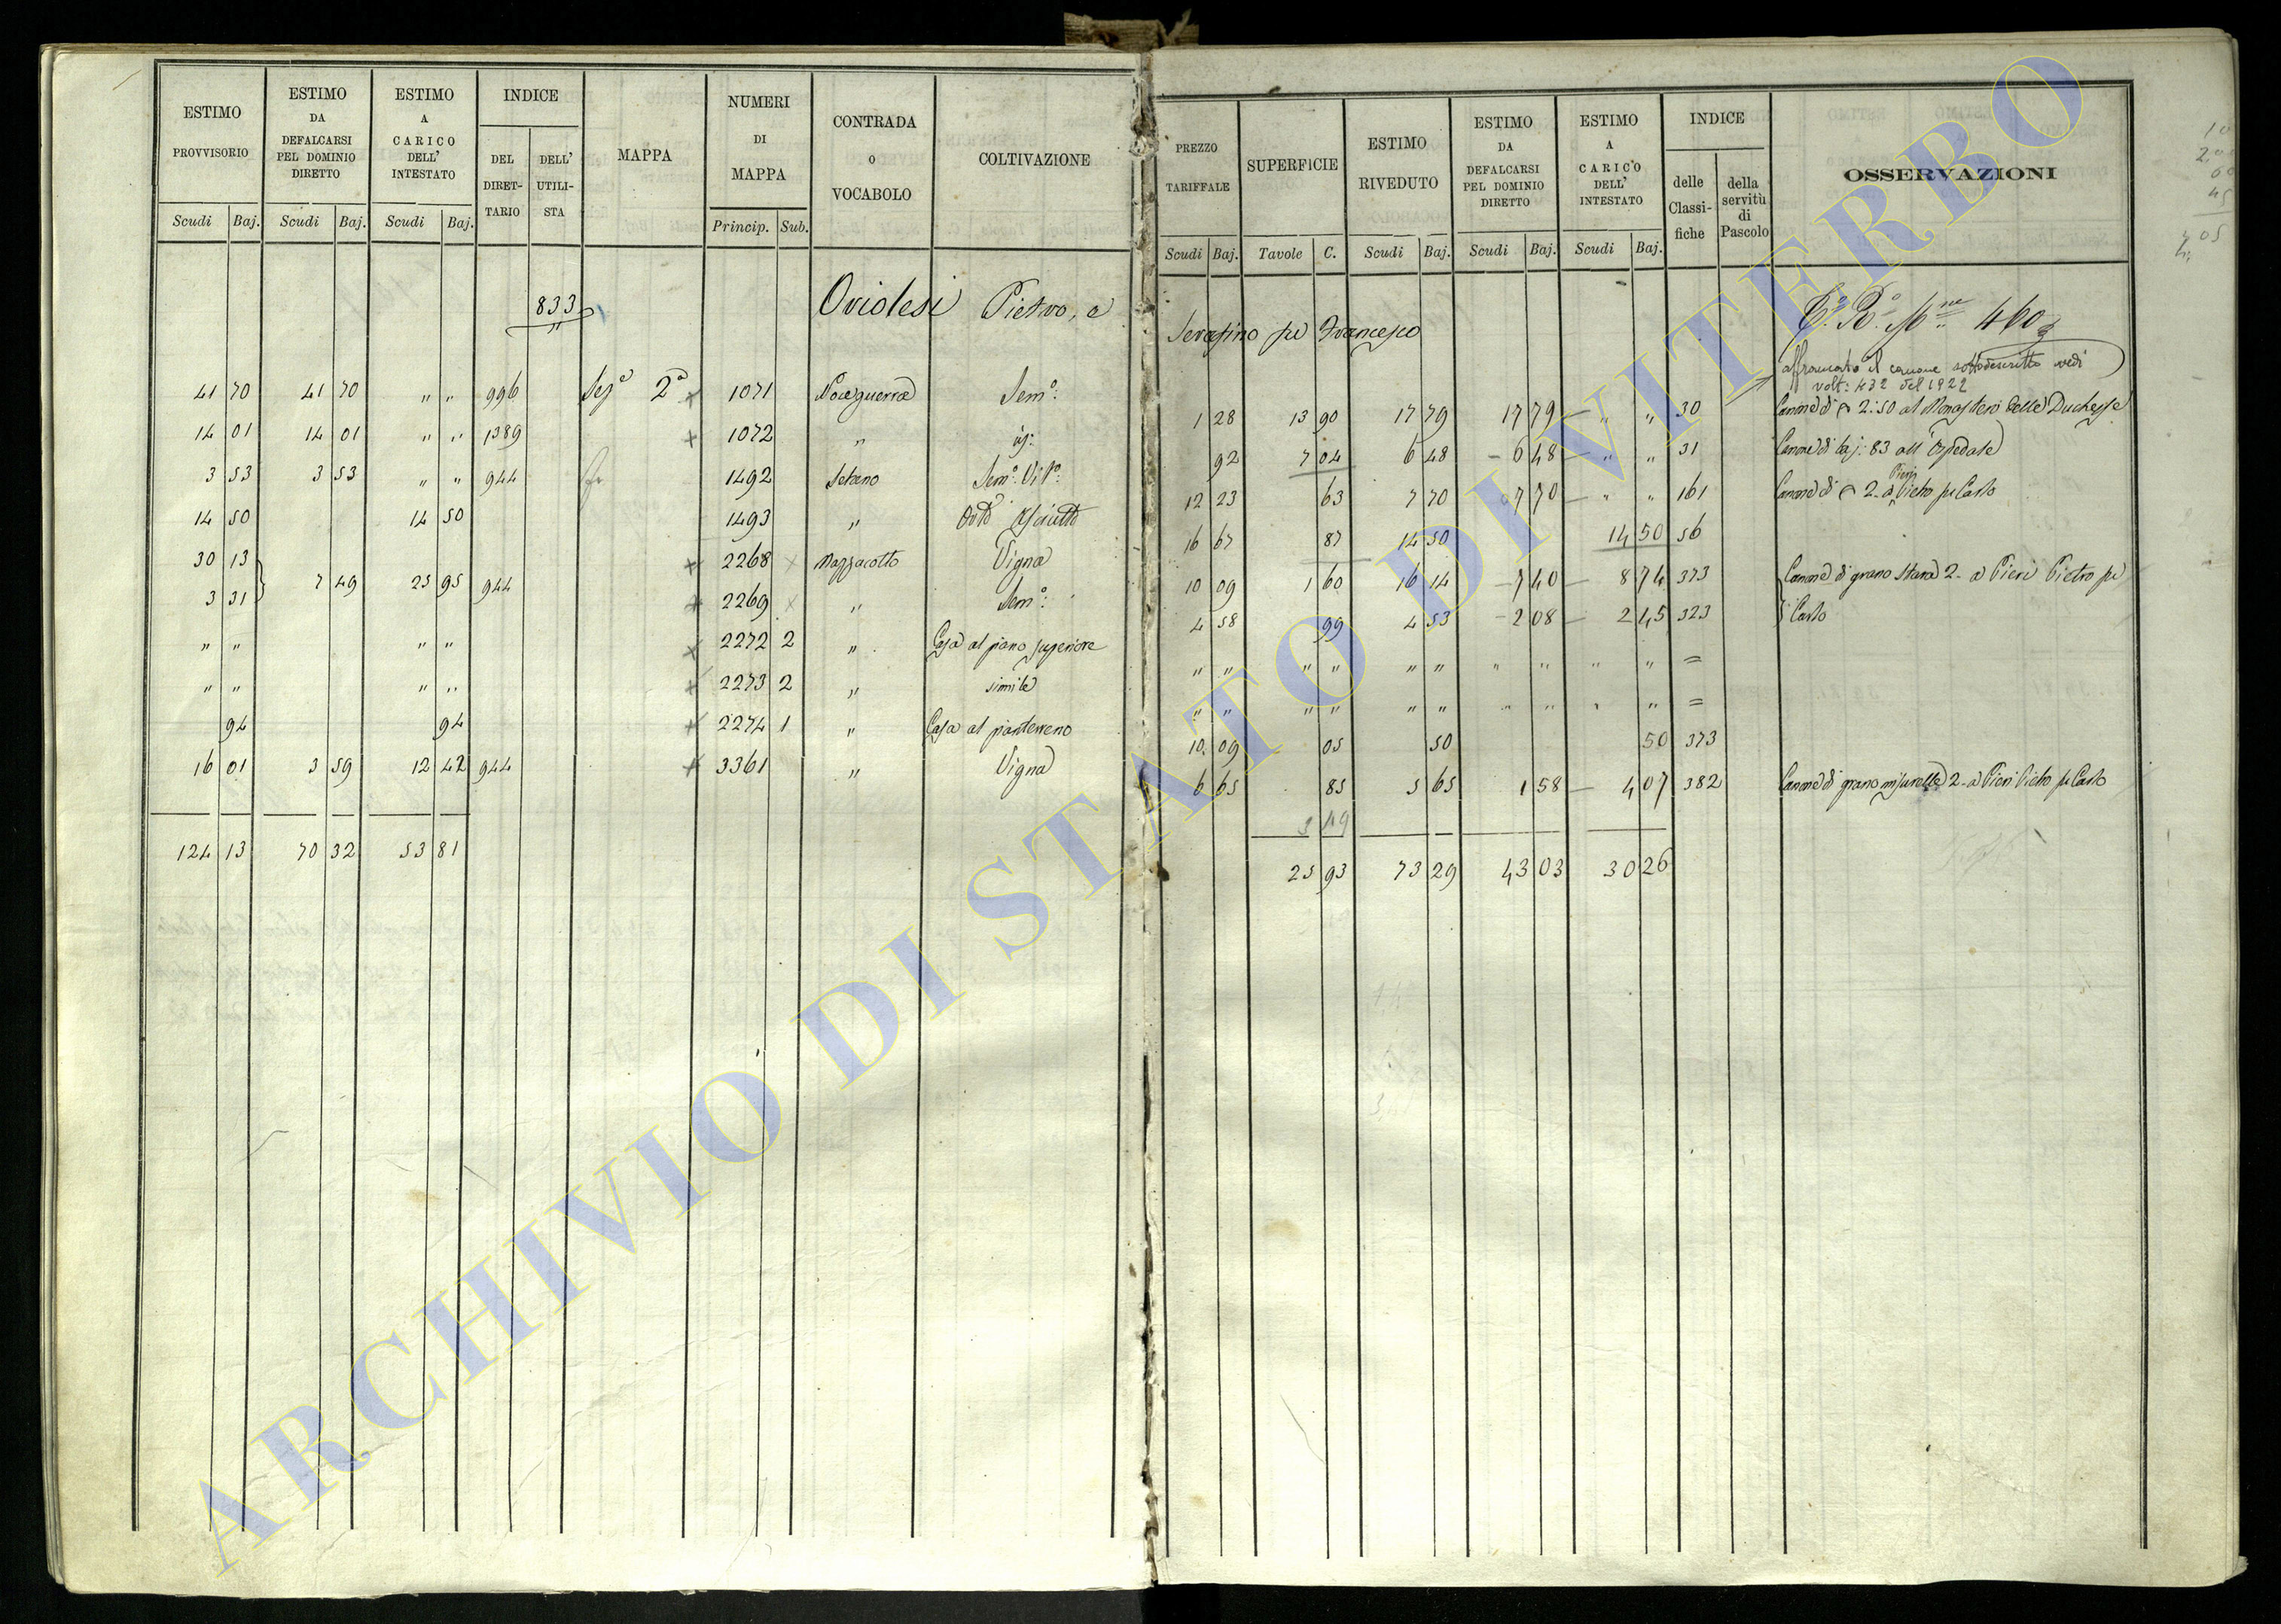 ESTIMO PROVVISORIO
ESTIMO DA DEFALCARSI PEL DOMINIO DIRETTO
ESTIMO A CARICO DELL' INTESTATO
INDICE
DEL DIRET-TARIO
DELL' UTILI-STA
MAPPA
NUMERI DI MAPPA
CONTRADA O VOCABOLO
COLTIVAZIONE
Scudi Baj. Scudi Baj. Scudi Baj. Princip. Sub.
PREZZO TARIFFALE
SUPERFICIE
ESTIMO RIVEDUTO
ESTIMO DA DEFALCARSI PEL DOMINIO DIRETTO
ESTIMO A CARICO DELL' INTESTATO
INDICE
delle Classi-fiche
della servitù di Pascolo
OSSERVAZIONI
Scudi Baj. Tavole C. Scudi Baj. Scudi Baj. Scudi Baj.
833 Oriolesi Pietro, e Serafino fu Francesco 460
affrancato il canone sottodescritto vedi
volt: 432 del 1922
41 70 41 70 " " 996 Sez 2a 1071 Noceguerra Sem: 1 28 13 90 17 79 17 79 " " 30 Canone di 2:50 al Monastero delle Duchesse
14 01 14 01 " " 1389 1072 " 92 7 04 6 48 6 48 " " 31 Canone di baj: 83 all' Ospedale
3 53 3 53 " " 944 1492 Sem: Vit: 12 23 63 7 70 7 70 " " 161 Canone di 2 - a Pieri Pietro fu Carlo
14 50 14 50 1493 " Orto asciutto 16 67 87 14 50 14 50 56
30 13 7 49 25 95 944 2268 Mazzacotto Vigna 10 09 1 60 16 14 7 40 8 74 373 Canone di grano Stara 2 - a Pieri Pietro fu
3 31 2269 " Sem: 4 58 99 4 53 2 08 2 45 323 Carlo
" " " " 2272 2 " Casa al piano superiore " " " " " " " " " " =
" " " " 2273 2 " simile " " " " " " " " " " =
94 94 2274 1 " Casa al pianterreno 10 09 05 50 50 373
16 01 3 59 12 42 944 3361 " Vigna 6 65 85 5 65 1 58 4 07 382 Canone di grano misurelle 2 - a Pieri Pietro fu Carlo
3 49
124 13 70 32 53 81 25 93 73 29 43 03 30 26
ARCHIVIO DI STATO DI VITERBO